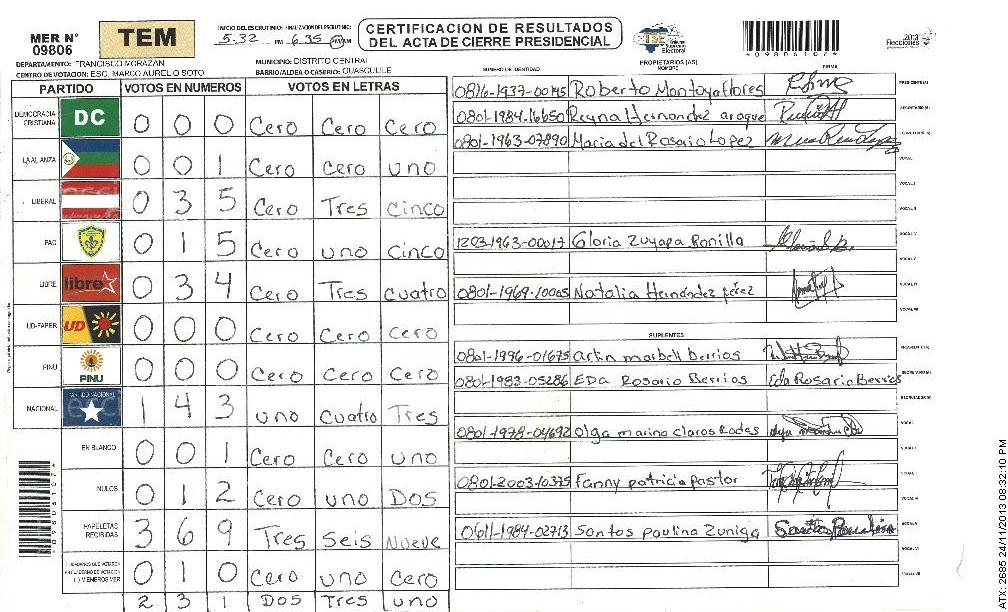 MER N° 09806
TEM
INICIO DEL ESCRUTINIO: 5:32 PM FINALIZACION DEL ESCRUTINIO: 6:35 AM/PM
CERTIFICACION DE RESULTADOS
DEL ACTA DE CIERRE PRESIDENCIAL
TSE Tribunal Supremo Electoral
*09806107*
2013 Elecciones
DEPARTAMENTO: FRANCISCO MORAZAN
MUNICIPIO: DISTRITO CENTRAL
CENTRO DE VOTACION: ESC. MARCO AURELIO SOTO
BARRIO/ALDEA O CASERIO: GUASCULILE
PARTIDO VOTOS EN NUMEROS VOTOS EN LETRAS
DEMOCRACIA CRISTIANA DC 0 0 0 Cero Cero Cero
LA ALIANZA 0 0 1 Cero Cero uno
LIBERAL 0 3 5 Cero Tres Cinco
PAC 0 1 5 Cero uno Cinco
LIBRE libre 0 3 4 Cero Tres Cuatro
UD-FAPER UD 0 0 0 Cero Cero Cero
PINU PINU 0 0 0 Cero Cero Cero
NACIONAL PARTIDO NACIONAL 1 4 3 uno Cuatro Tres
EN BLANCO 0 0 1 Cero Cero uno
NULOS 0 1 2 Cero uno Dos
PAPELETAS RECIBIDAS 3 6 9 Tres Seis Nueve
CIUDADANOS QUE VOTARON EN CUADERNO DE VOTACION (+) MIEMBROS MER 0 1 0 Cero uno Cero
2 3 1 Dos Tres uno
*09806107*
PROPIETARIOS (AS)
NUMERO DE IDENTIDAD NOMBRE FIRMA
0816-1937-00145 Roberto Montoya flores PRESIDENTE(A)
0801-1984-16650 Reyna Hernandez araque SECRETARIO (A)
0801-1963-07890 Maria del Rosario Lopez ESCRUTADOR (A)
VOCAL I
1203-1963-00017 Gloria Zuyapa Bonilla VOCAL IV
VOCAL V
0801-1969-10065 Natalia Hernández pérez VOCAL VI
SUPLENTES
0801-1996-01675 arlin marbell berrios PRESIDENTE (A)
0801-1983-05286 EDA Rosario Berrios Eda Rosario Berrios SECRETARIO (A)
ESCRUTADOR (A)
0801-1978-04692 Olga marina claros Rodas VOCAL I
0801-2003-10375 Fanny patricia pastor
0611-1984-02713 Santos paulina Zuniga
ATX: 2685 24/11/2013 08:32:10 PM